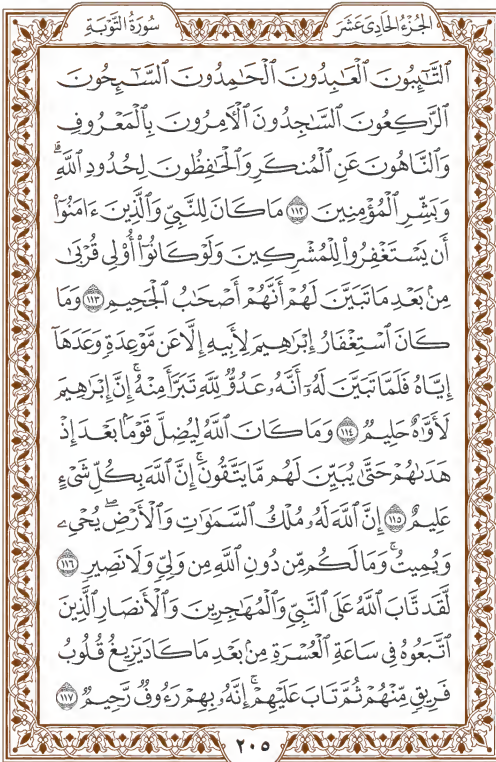 الجُزْءُ الحَادِي عَشَرَ
سُورَةُ التَّوْبَةِ
ٱلتَّٰٓئِبُونَ ٱلْعَٰبِدُونَ ٱلْحَٰمِدُونَ ٱلسَّٰٓئِحُونَ
ٱلرَّٰكِعُونَ ٱلسَّٰجِدُونَ ٱلْأٓمِرُونَ بِٱلْمَعْرُوفِ
وَٱلنَّاهُونَ عَنِ ٱلْمُنكَرِ وَٱلْحَٰفِظُونَ لِحُدُودِ ٱللَّهِۗ
وَبَشِّرِ ٱلْمُؤْمِنِينَ ١١٢ مَا كَانَ لِلنَّبِيِّ وَٱلَّذِينَ ءَامَنُوٓا۟
أَن يَسْتَغْفِرُوا۟ لِلْمُشْرِكِينَ وَلَوْ كَانُوٓا۟ أُو۟لِى قُرْبَىٰ
مِنۢ بَعْدِ مَا تَبَيَّنَ لَهُمْ أَنَّهُمْ أَصْحَٰبُ ٱلْجَحِيمِ ١١٣ وَمَا
كَانَ ٱسْتِغْفَارُ إِبْرَٰهِيمَ لِأَبِيهِ إِلَّا عَن مَّوْعِدَةٍ وَعَدَهَآ
إِيَّاهُ فَلَمَّا تَبَيَّنَ لَهُۥٓ أَنَّهُۥ عَدُوٌّ لِّلَّهِ تَبَرَّأَ مِنْهُۚ إِنَّ إِبْرَٰهِيمَ
لَأَوَّٰهٌ حَلِيمٌ ١١٤ وَمَا كَانَ ٱللَّهُ لِيُضِلَّ قَوْمًۢا بَعْدَ إِذْ
هَدَىٰهُمْ حَتَّىٰ يُبَيِّنَ لَهُم مَّا يَتَّقُونَۚ إِنَّ ٱللَّهَ بِكُلِّ شَىْءٍ
عَلِيمٌ ١١٥ إِنَّ ٱللَّهَ لَهُۥ مُلْكُ ٱلسَّمَٰوَٰتِ وَٱلْأَرْضِۖ يُحْىِۦ
وَيُمِيتُۚ وَمَا لَكُم مِّن دُونِ ٱللَّهِ مِن وَلِىٍّ وَلَا نَصِيرٍ ١١٦
لَّقَد تَّابَ ٱللَّهُ عَلَى ٱلنَّبِىِّ وَٱلْمُهَٰجِرِينَ وَٱلْأَنصَارِ ٱلَّذِينَ
ٱتَّبَعُوهُ فِى سَاعَةِ ٱلْعُسْرَةِ مِنۢ بَعْدِ مَا كَادَ يَزِيغُ قُلُوبُ
فَرِيقٍ مِّنْهُمْ ثُمَّ تَابَ عَلَيْهِمْۚ إِنَّهُۥ بِهِمْ رَءُوفٌ رَّحِيمٌ ١١٧
٢٠٥